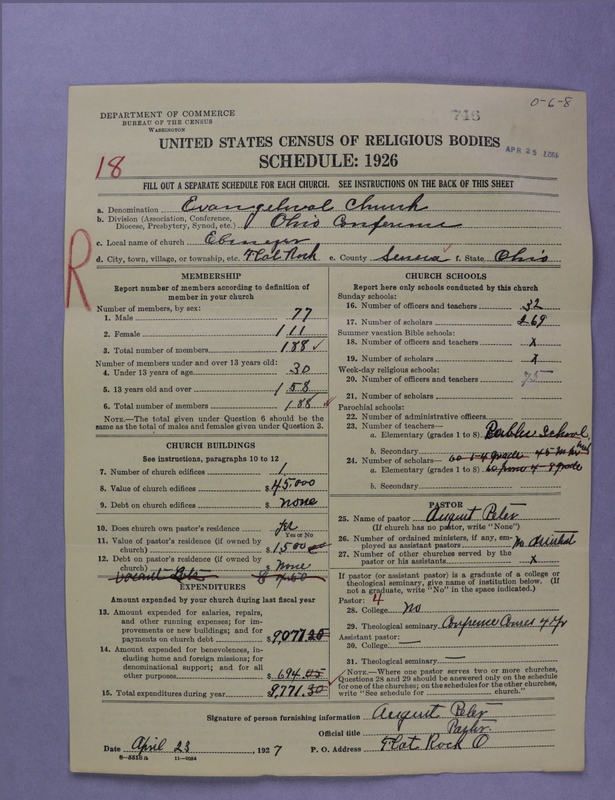 0-6-8
DEPARTMENT OF COMMERCE
BUREAU OF THE CENSUS
WASHINGTON
716
APR 25
UNITED STATES CENSUS OF RELIGIOUS BODIES
SCHEDULE: 1926
18
FILL OUT A SEPARATE SCHEDULE FOR EACH CHURCH. SEE INSTRUCTIONS ON THE BACK OF THIS SHEET
a. Denomination Evangelical Church
b. Division (Association, Conference, Diocese, Presbytery, Synod, etc.) Ohio Conference
c. Local name of church Ebenezer
d. City, town, village, or township, etc. Flat Rock e. County Seneca f. State Ohio
R
MEMBERSHIP
Report number of members according to definition of
member in your church
Number of members, by sex:
1. Male 77
2. Female 111
3. Total number of members 188
Number of members under and over 13 years old:
4. Under 13 years of age 30
5. 13 years old and over 158
6. Total number of members 188
NOTE.—The total given under Question 6 should be
same as the total of males and females given under Question 3.
CHURCH BUILDINGS
See instructions, paragraphs 10 to 12
7. Number of church edifices 1
8. Value of church edifices $45000
9. Debt on church edifices $ none
10. Does church own pastor's residence yes
Yes or No
11. Value of pastor's residence (if owned by
church) $1500
12. Debt on pastor's residence (if owned by
church) $ none
Vacant Lots $
EXPENDITURES
Amount expended by your church during last fiscal year
13. Amount expended for salaries, repairs,
and other running expenses; for im-
provements or new buildings; and for
payments on church debt $9,077.25
14. Amount expended for benevolences, in-
cluding home and foreign missions; for
denominational support; and for all
other purposes $694.05
15. Total expenditures during year $9,771.30
CHURCH SCHOOLS
Report here only schools conducted by this church
Sunday schools:
16. Number of officers and teachers 32
17. Number of scholars 269
Summer vacation Bible schools:
18. Number of officers and teachers x
19. Number of scholars x
Week-day religious schools:
20. Number of officers and teachers 75
21. Number of scholars
Parochial schools:
22. Number of administrative officers
23. Number of teachers—
a. Elementary (grades 1 to 8) Public School
b. Secondary
24. Number of scholars— 60 1-4 grade 45 in
a. Elementary (grades 1 to 8) 60 from 4-8 grade
b. Secondary
PASTOR
25. Name of pastor August Peter
(If church has no pastor, write "None")
26. Number of ordained ministers, if any, em-
ployed as assistant pastors no
27. Number of other churches served by the
pastor or his assistants x
If pastor (or assistant pastor) is a graduate of a college or
theological seminary, give name of institution below. (If
not a graduate, write "No" in the space indicated.)
Pastor: 4
28. College no
29. Theological seminary Conference Course 4 yr
Assistant pastor:
30. College —
31. Theological seminary —
NOTE.—Where one pastor serves two or more churches,
Questions 28 and 29 should be answered only on the schedule
for one of the churches; on the schedules for the other churches,
write "See schedule for church."
Signature of person furnishing information August Peter
Official title Pastor
Date April 23, 1927 P. O. Address Flat Rock O
8-5518a 11-9084